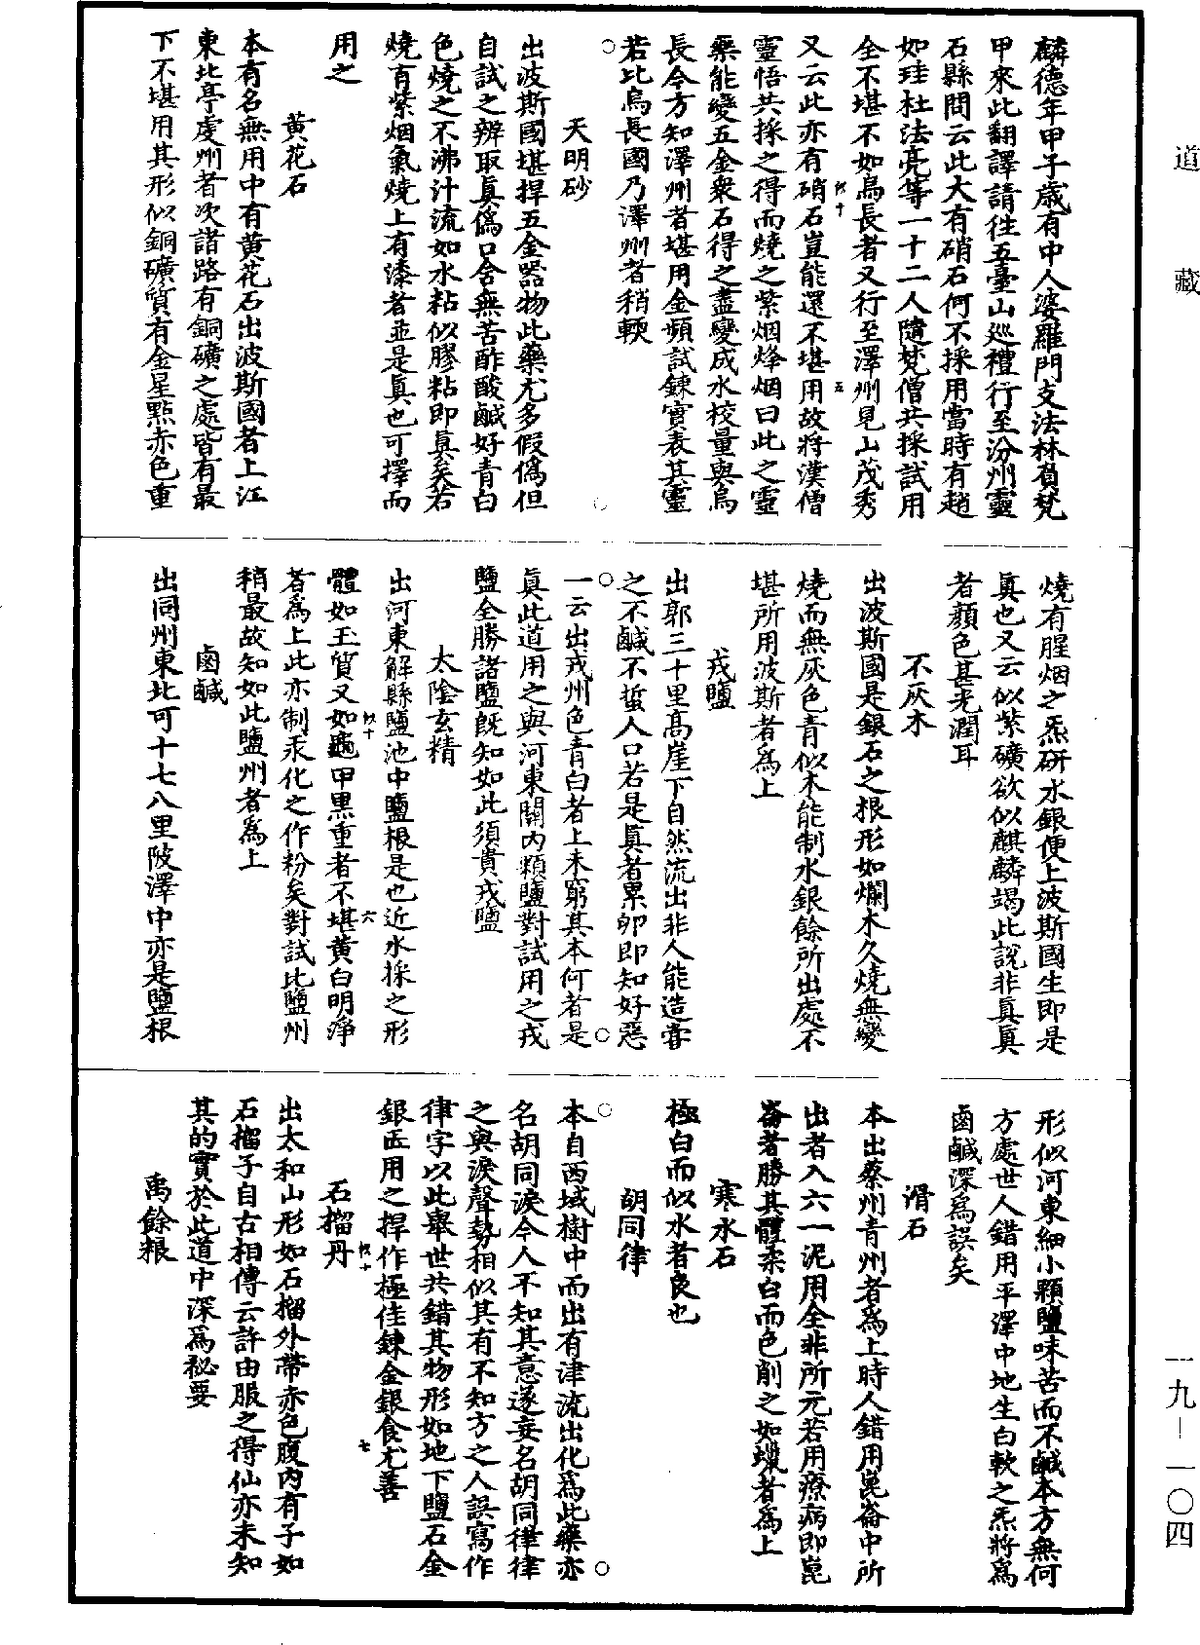 道藏
麟德年甲子歲有中人婆羅門支法林負梵
甲來此翻譯請往五臺山巡禮行至汾州靈
石縣問云此大有硝石何不採用當時有趙
如珪杜法亮等一十二人隨梵僧共採試用
全不堪不如烏長者又行至澤州見山茂秀
又云此亦有硝石豈能還不堪用故將漢僧
靈悟共採之得而燒之紫烟烽烟曰此之靈
藥能變五金衆石得之盡變成水校量與烏
長今方知澤州者堪用金頻試鍊實表其靈
若比烏長國乃澤州者稍軟
天明砂
出波斯國堪捍五金器物此藥尤多假僞但
自試之辨取眞僞口含無苦酢酸鹹好青白
色燒之不沸汁流如水粘似膠粘即眞矣若
燒有紫烟氣燒上有漆者並是眞也可擇而
用之
黃花石
本有名無用中有黃花石出波斯國者上江
東北亭虔州者次諸路有銅礦之處皆有最
下不堪用其形似銅礦質有金星點赤色重
燒有腥烟之炁研水銀便上波斯國生即是
眞也又云似紫礦欲似麒麟竭此說非眞眞
者顏色甚光潤耳
不灰木
出波斯國是銀石之根形如爛木久燒無變
燒而無灰色青似木能制水銀餘所出處不
堪所用波斯者爲上
戎鹽
出郭三十里高崖下自然流出非人能造嘗
之不鹹不蜇人口若是眞者累卵即知好惡
一云出戎州色青白者上未窮其本何者是
眞此道用之與河東關內顆鹽對試用之戎
鹽全勝諸鹽旣知如此須貴戎鹽
太陰玄精
出河東解縣鹽池中鹽根是也近水採之形
體如玉質又如龜甲黑重者不堪黃白明淨
者爲上此亦制汞化之作粉矣對試比鹽州
稍最故知如此鹽州者爲上
鹵鹹
出同州東北可十七八里陂澤中亦是鹽根
形似河東細小顆鹽味苦而不鹹本方無何
方處世人錯用平澤中地生白軟之炁將爲
鹵鹹深爲誤矣
滑石
本出蔡州青州者爲上時人錯用崑崙中所
出者入六一泥用全非所元若用療病即崑
崙者勝其體柔白而色削之如蠟者爲上
寒水石
極白而似水者良也
胡同律
本自西域樹中而出有津流出化爲此藥亦
名胡同淚今人不知其意遂妄名胡同律律
之與淚聲勢相似其有不知方之人誤寫作
律字以此舉世共錯其物形如地下鹽石金
銀匠用之捍作極佳鍊金銀食尤善
石榴丹
出太和山形如石榴外帶赤色腹內有子如
石榴子自古相傳云許由服之得仙亦未知
其的實於此道中深爲秘要
禹餘粮
一九－一〇四